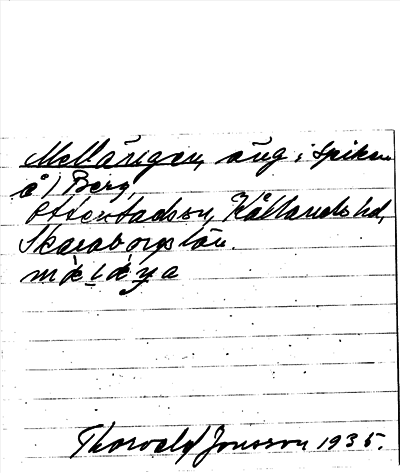 Mellängen, äng i Spiken
å 1 Berg,
Otterstadson, Kållands hd,
Skaraborgs län.
Thorvald Jonsson 1935.